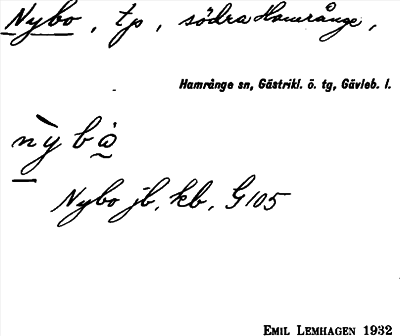 Nybo, tp, södra Hamrånge,
Hamrånge sn, Gästrikl. ö. tg, Gävleb. l.
nỳbå̀
Nybo jb, kb, G105
EMIL LEMHAGEN 1932